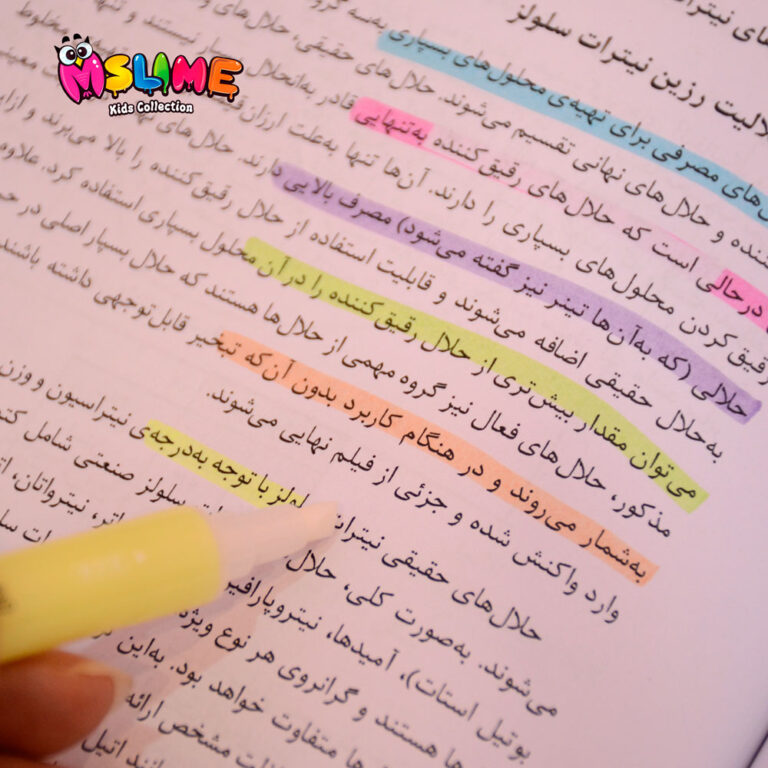 MSLIME
Kids Collection
های نیترات
حلالیت رزین نیترات سلولز
های مصرفی برای تهیه‌ی محلول‌های بسپاری به‌سه گروه
کننده و حلال‌های نهانی تقسیم می‌شوند. حلال‌های حقیقی، حلال‌های
درحالی است که حلال‌های رقیق‌کننده به‌تنهایی قادر به‌انحلال نیستند و تنها
رقیق کردن محلول‌های بسپاری را دارند. آن‌ها تنها به‌علت ارزان مخلوط
حلالی (که به‌آن‌ها تینر نیز گفته می‌شود) مصرف بالایی دارند. حلال‌های
به‌حلال حقیقی اضافه می‌شوند و قابلیت استفاده از حلال رقیق‌کننده را بالا می‌برند و از
می‌توان مقدار بیش‌تری از حلال رقیق‌کننده را در آن محلول بسپاری استفاده کرد. علاوه
مذکور، حلال‌های فعال نیز گروه مهمی از حلال‌ها هستند که حلال بسپار اصلی در
به‌شمار می‌روند و در هنگام کاربرد بدون آن‌که تبخیر قابل‌توجهی داشته باشند
وارد واکنش شده و جزئی از فیلم نهایی می‌شوند.
حلال‌های حقیقی نیترات سلولز با توجه به‌درجه‌ی نیتراسیون و وزن
می‌شوند. به‌صورت کلی، حلال سلولز صنعتی شامل
بوتیل استات)، آمیدها، نیتروپارافین نیترواتان،
ها هستند و گرانروی هر نوع ویژه
ها متفاوت خواهد بود. به‌این
مشخص ارائه
مانند اتیل